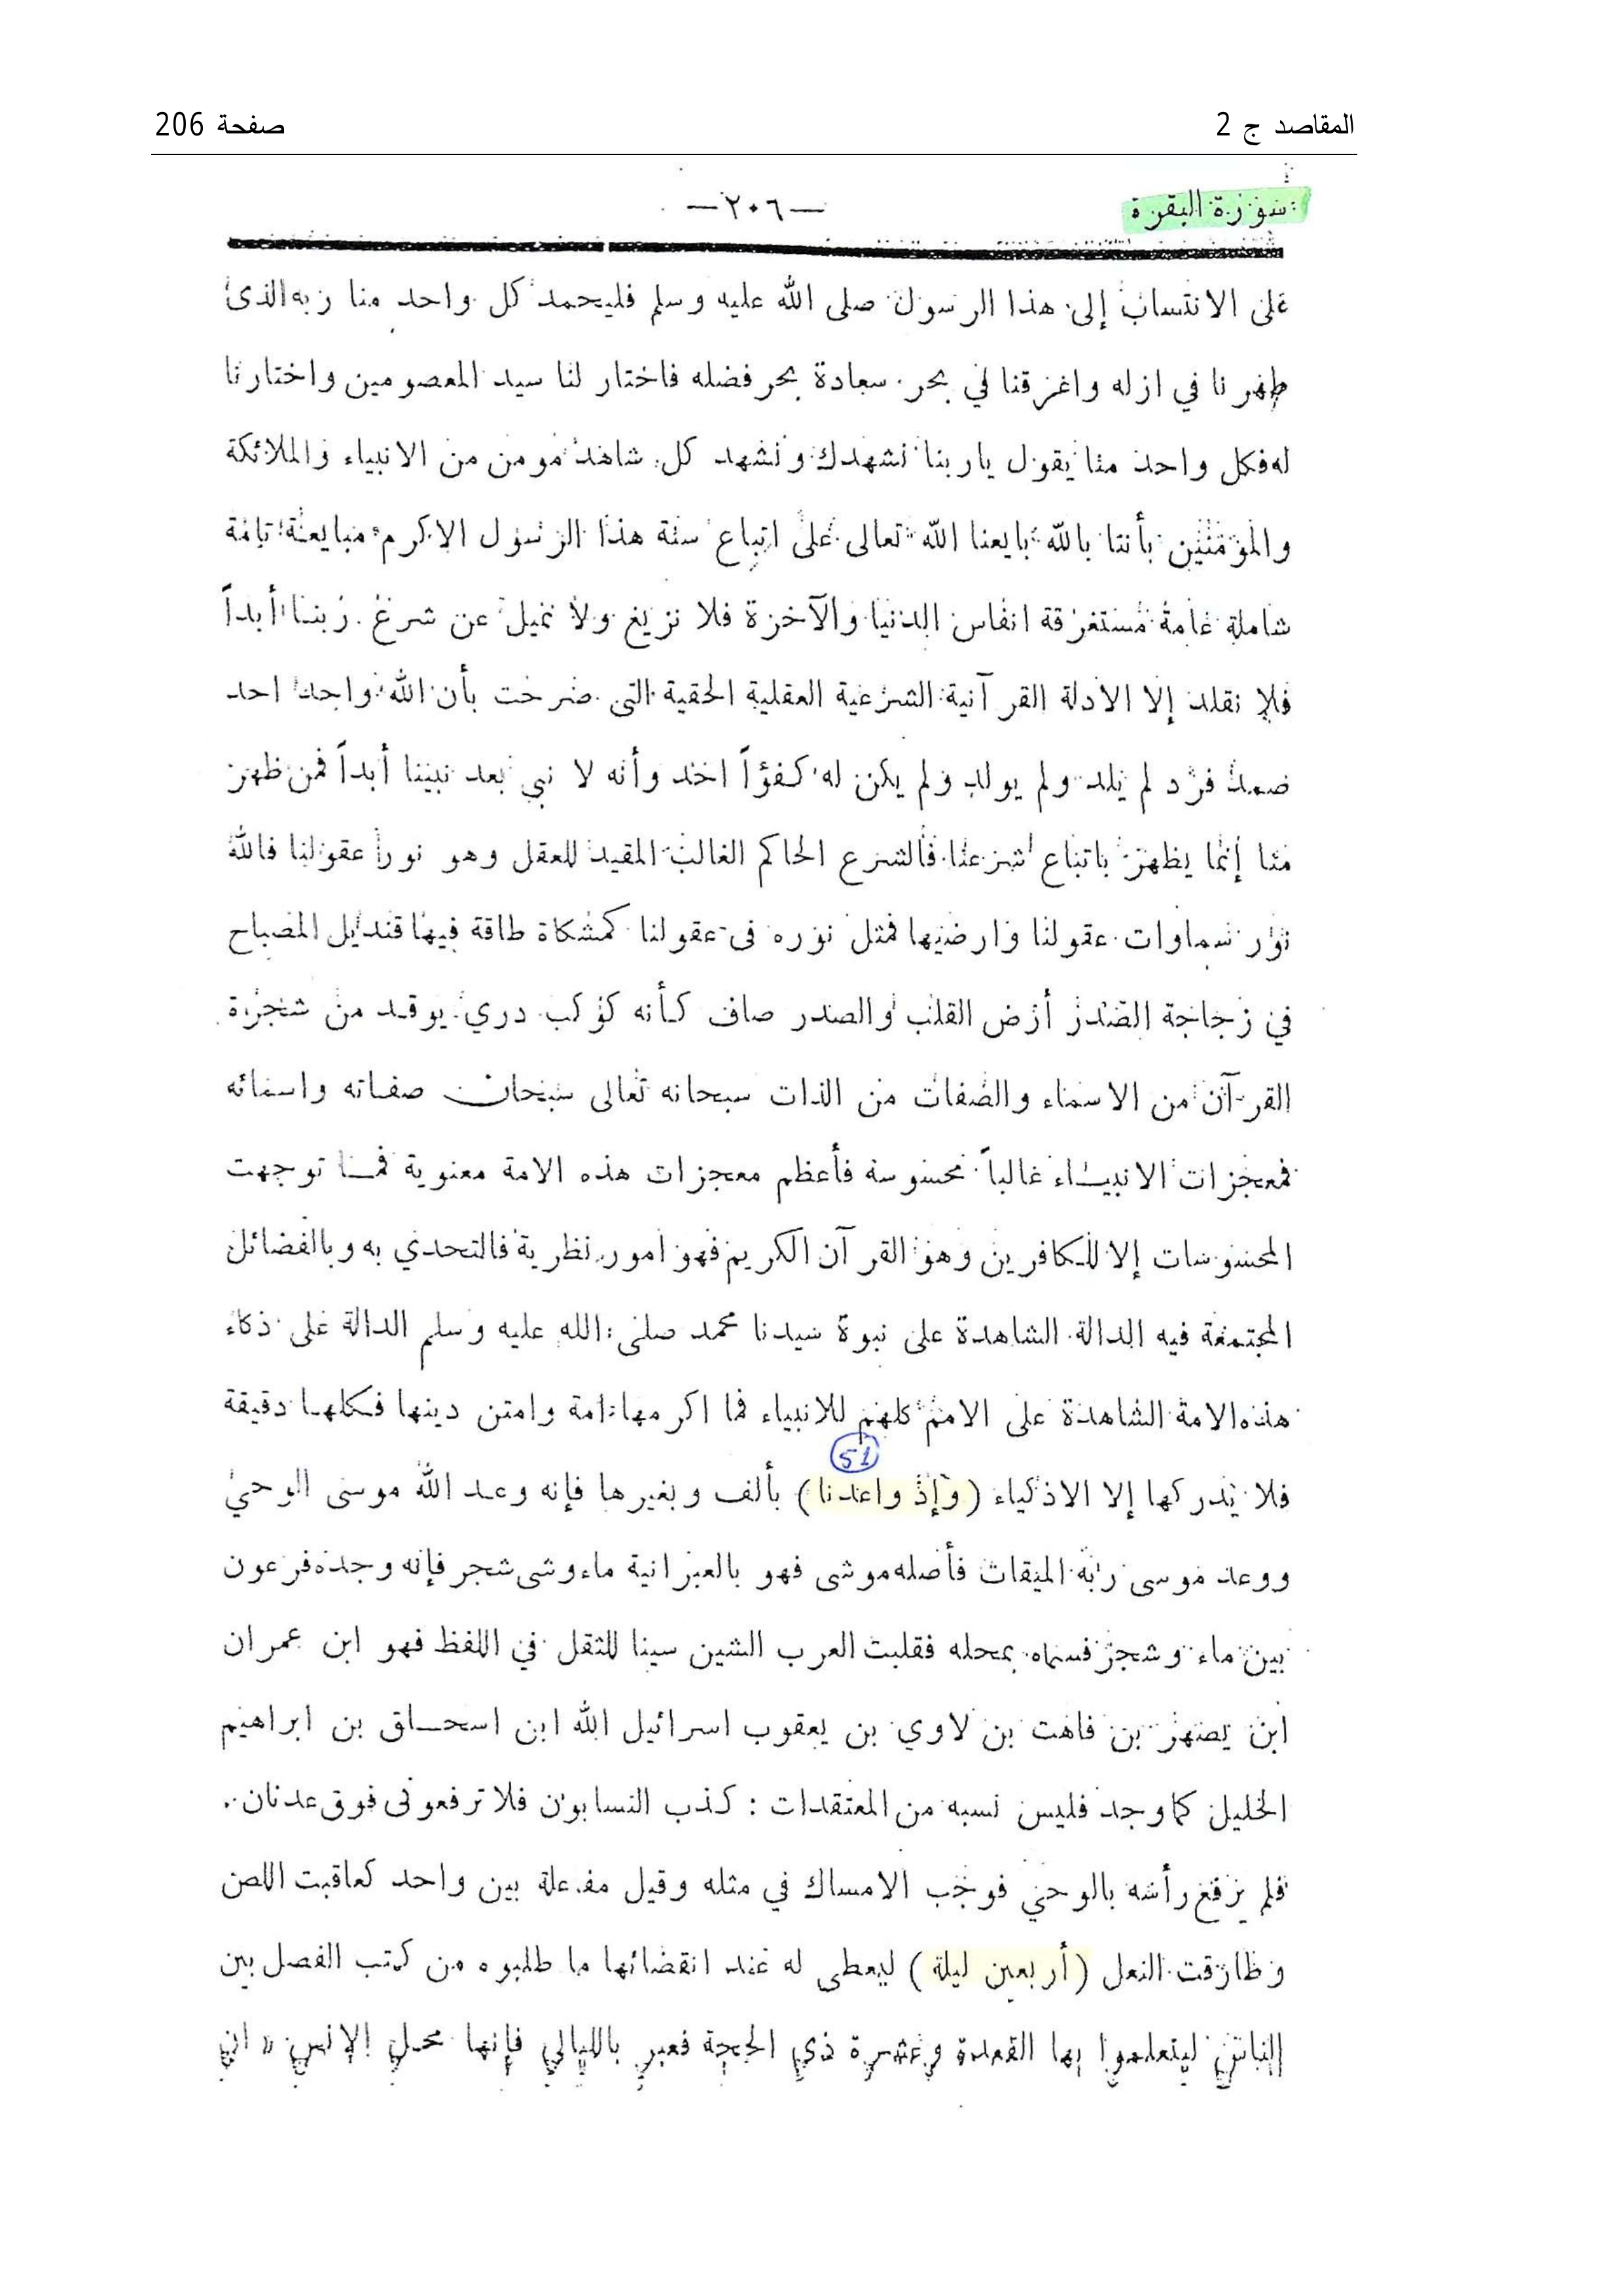 المقاصد ج 2
صفحة 206
سورة البقرة
—٢٠٦—
على الانتساب إلى هذا الرسول صلى الله عليه وسلم فليحمد كل واحد منا ربه الذى
طهرنا في ازله واغرقنا في بحر سعادة بحر فضله فاختار لنا سيد المعصومين واختارنا
له فكل واحد منا يقول ياربنا نشهدك ونشهد كل شاهد مومن من الانبياء والملائكة
والمؤمنين بأننا بالله بايعنا الله تعالى على اتباع سنة هذا الرسول الاكرم مبايعة تامة
شاملة عامة مستغرقة انفاس الدنيا والآخرة فلا نزيغ ولا نميل عن شرع ربنا أبداً
فلا نقلد إلا الادلة القرآنية الشرعية العقلية الحقية التى صرحت بأن الله واحد احد
صمد فرد لم يلد ولم يولد ولم يكن له كفؤاً احد وأنه لا نبي بعد نبينا أبداً فمن ظهر
منا إنما يظهر باتباع شرعنا فالشرع الحاكم الغالب المقيد للعقل وهو نورا عقولنا فالله
نور سماوات عقولنا وارضيها فمثل نوره فى عقولنا كمشكاة طاقة فيها قنديل المصباح
في زجاجة الصدر أرض القلب والصدر صاف كأنه كوكب دري يوقد من شجرة
القرآن من الاسماء والصفات من الذات سبحانه تعالى سبحان صفاته واسمائه
فمعجزات الانبياء غالباً محسوسة فأعظم معجزات هذه الامة معنوية فمـا توجهت
المحسوسات إلا للكافرين وهو القرآن الكريم فهو امور نظرية فالتحدي به وبالفضائل
المجتمعة فيه الدالة الشاهدة على نبوة سيدنا محمد صلى الله عليه وسلم الدالة على ذكاء
هذه الامة الشاهدة على الامم كلهم للانبياء فما اكرمها امة وامتن دينها فكلها دقيقة
51
فلا يدركها إلا الاذكياء (وإذ واعدنا) بألف وبغيرها فإنه وعد الله موسى الوحي
ووعد موسى ربه الميقات فأصله موشى فهو بالعبرانية ماء وشى شجر فإنه وجده فرعون
بين ماء وشجر فسماه بمحله فقلبت العرب الشين سينا للثقل في اللفظ فهو ابن عمران
ابن يصهر بن فاهت بن لاوي بن يعقوب اسرائيل الله ابن اسحـاق بن ابراهيم
الخليل كما وجد فليس نسبه من المعتقدات : كذب النسابون فلا ترفعونى فوق عدنان .
فلم يرفع رأسه بالوحي فوجب الامساك في مثله وقيل مفاعلة بين واحد كعاقبت اللص
وطارقت النعل (أربعين ليلة) ليعطى له عند انقضائها ما طلبوه من كتب الفصل بين
الناس ليتعلموا بها القعدة وعشرة ذي الحجة فعبر بالليالي فإنها محل الإنس « ان